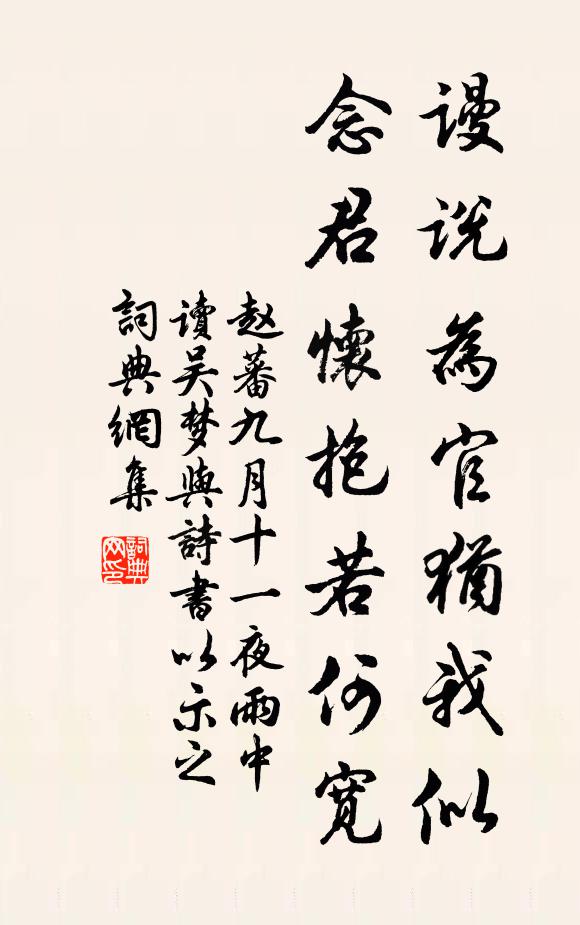 谩説為官猶我似
念君懷抱若何寬
赵蕃九月十一夜雨中
讀吴梦與詩書以示之
詞典網集
詞典
网印